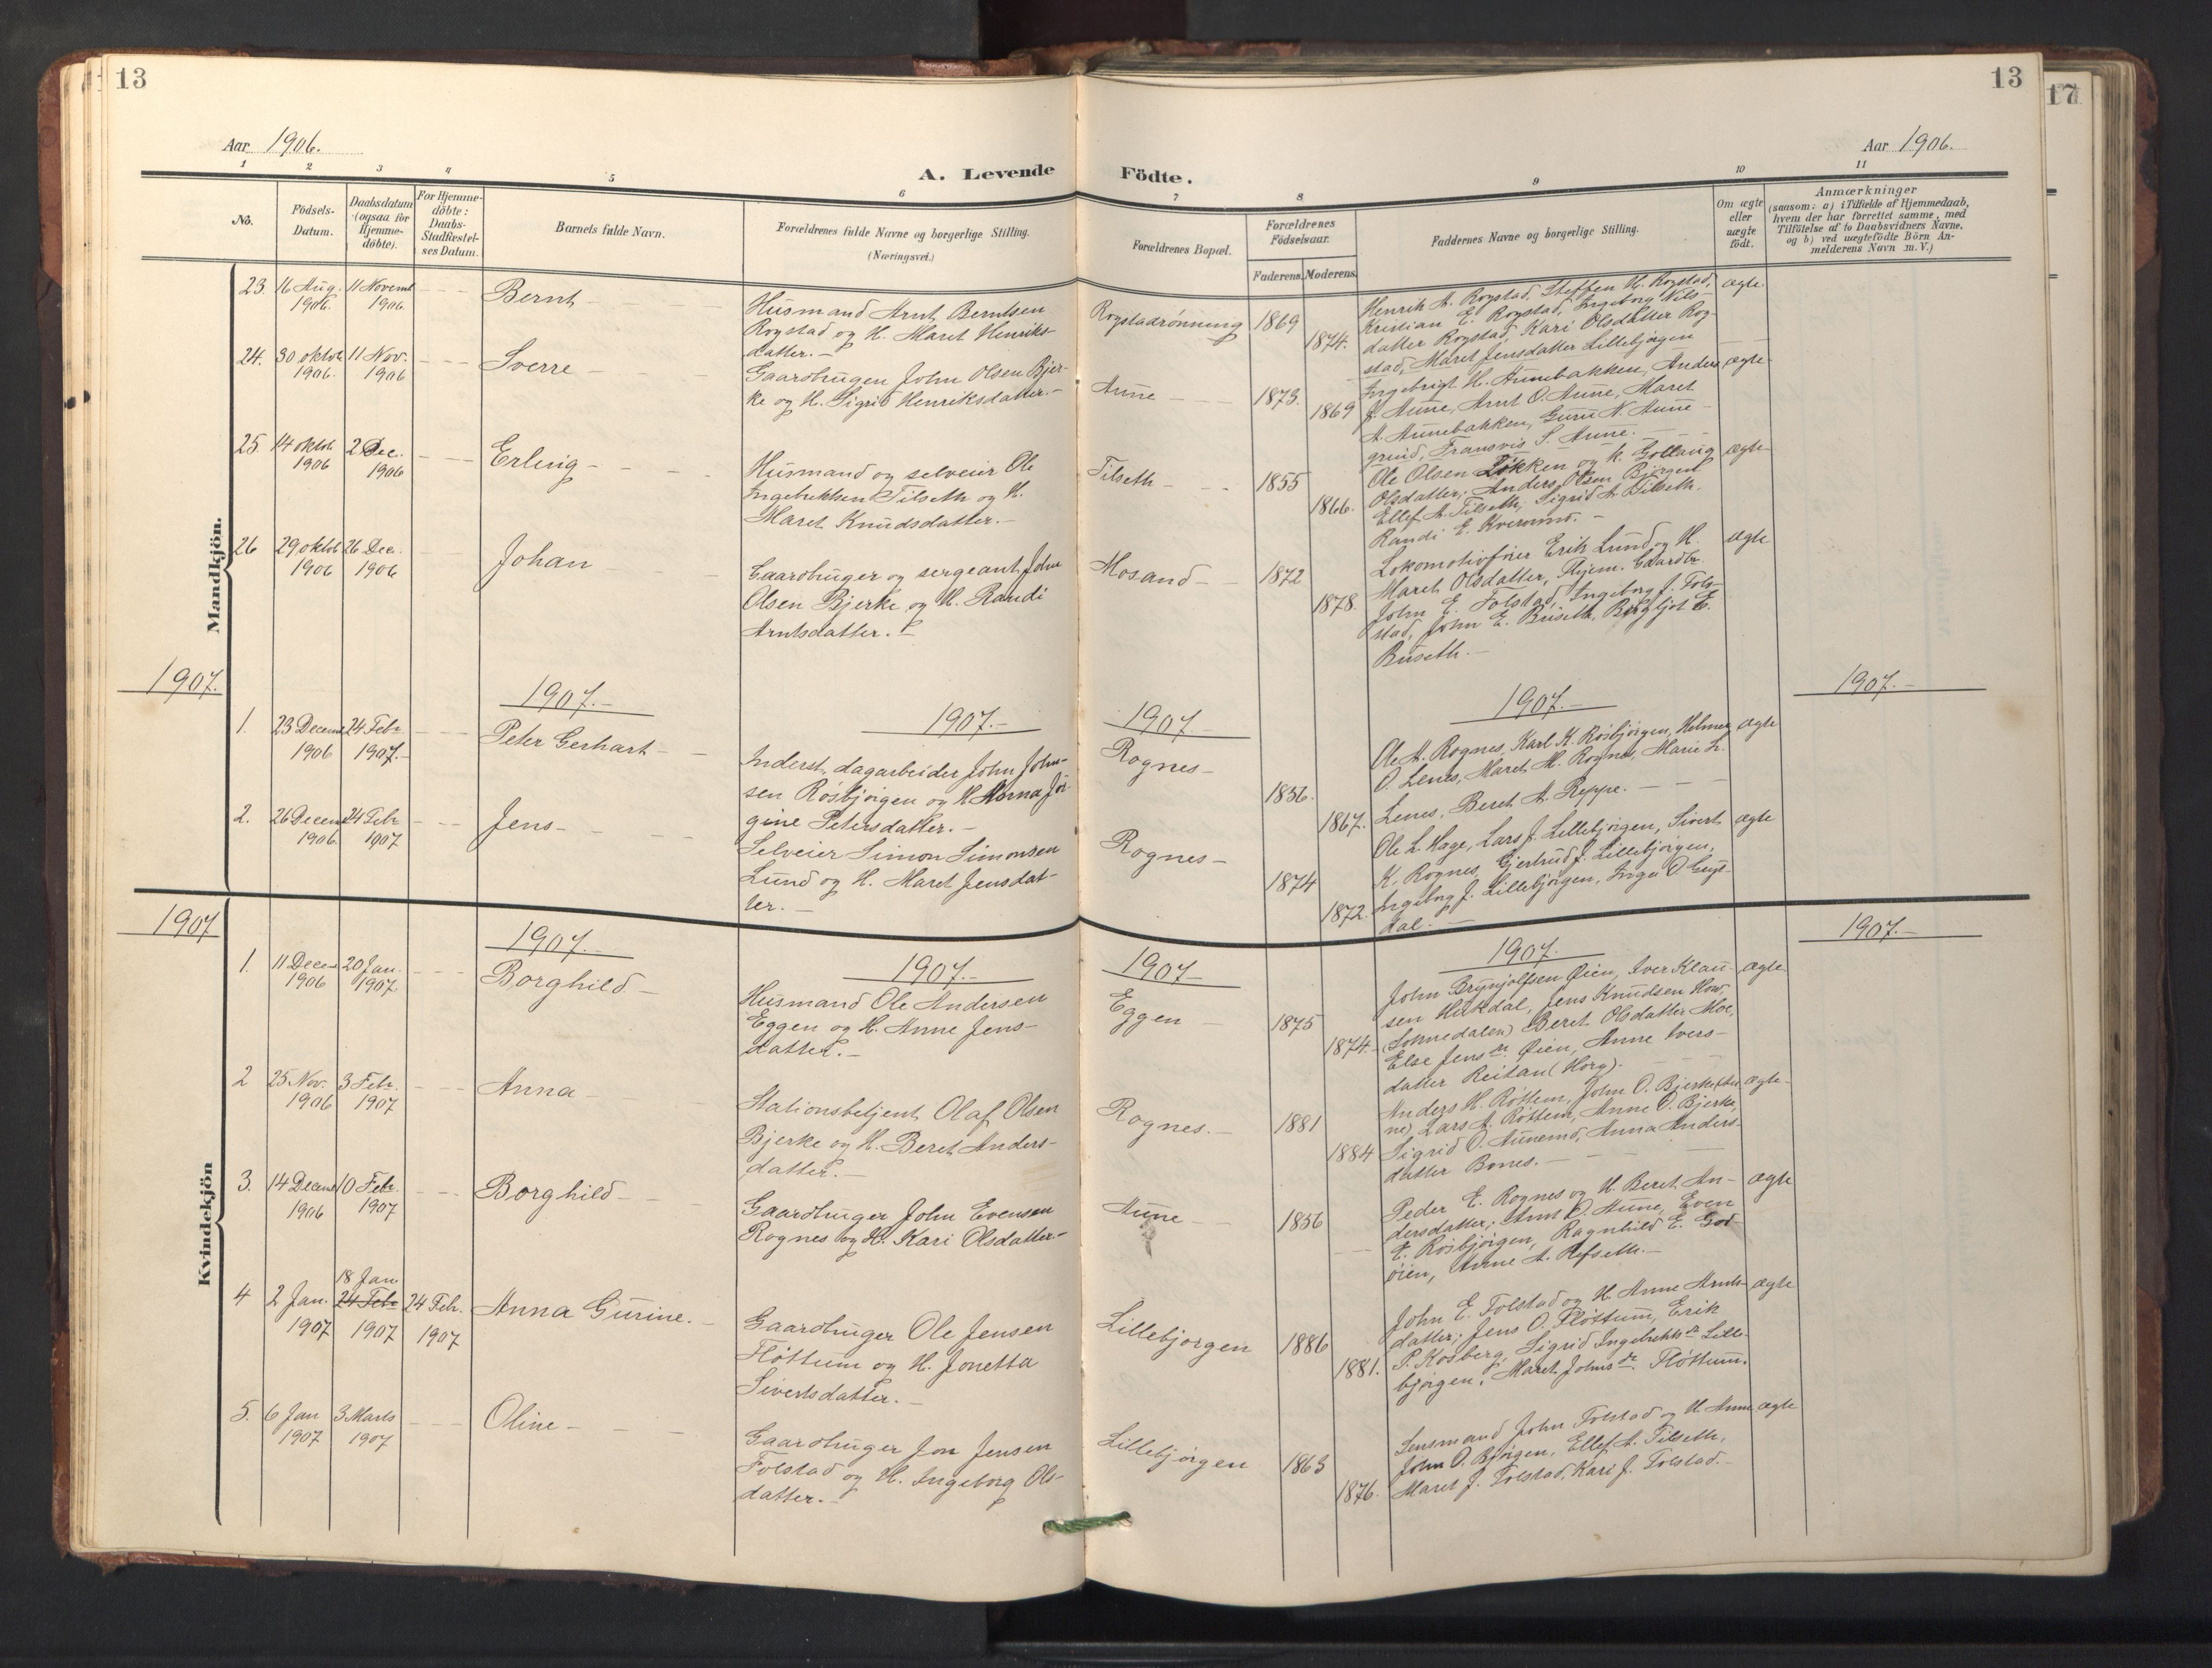 13
13
17
Aar 1906.
Aar 1906.
A. Levende Födte.
1 2 3 4 5 6 7 8 9 10 11
No.
Födsels-
Datum.
Daabsdatum
(ogsaa for
Hjemme-
döbte).
For Hjemme-
döbte:
Daabs-
Stadfæstel-
ses Datum.
Barnets fulde Navn.
Forældrenes fulde Navne og borgerlige Stilling.
(Næringsvei.)
Forældrenes Bopæl.
Forældrenes
Födselsaar.
Faderens. Moderens.
Faddernes Navne og borgerlige Stilling.
Om ægte
eller
uægte
födt.
Anmærkninger
(saasom: a) i Tilfælde af Hjemmedaab,
hvem der har forrettet samme, med
Tilföielse af to Daabsvidners Navne,
og b) ved uægtefödte Börn An-
melderens Navn m. V.)
Mandkjön.
23. 16 Aug. 1906. 11 Novemb 1906 - - - Bernt -
Husmand Arnt Berntsen
Rogstad og H. Maret Henriks-
datter. -
Rogstadrønning 1869 1874.
Henrik A. Rogstad, Steffen H. Rogstad,
Kristian E. Rogstad, Ingeborg Nils-
datter Rogstad, Kari Olsdatter Rog-
stad, Maret Jensdatter Lillebjørgen
ægte.
24. 30 oktob 1906. 11 Nov. 1906 - - - Sverre -
Gaardbruger John Olsen Bjer-
ke og H. Sigrid Henriksdatter. -
Aune - - - 1873. 1869
Ingebrigt H. Aunebakken, Anders
J. Aune, Arnt O. Aune, Maret
A. Aunebakken, Guru N. Aune-
grind, S. Aune. -
ægte
25. 14 oktob 1906 2 Dec. 1906 - - - Erling -
Husmand og selveier Ole
Ingebriktsen Tilseth og H.
Maret Knudsdatter. -
Tilseth - - - 1855 1866.
Ole Olsen Løkken og H. Gollaug
Olsdatter, Anders Olsen Bjørgen
Ellef A. Tilseth, Sigrid A. Tilseth.
Randi E. -
ægte
26 29 oktob 1906 26 Dec. 1906 - - - Johan -
Gaardbruger og sergeant, John
Olsen Bjerke og H. Randi
Arntsdatter. -
Mosand - - 1872 1878.
Lokomotivfører Erik Lund og H.
Maret Olsdatter, Thjem. Gaardbr.
John E. Folstad, Ingeborg J. Fols-
stad, John E. Buseth, Bergljot E.
Buseth. -
ægte
1907.
1907. -
1907. -
1907. -
1907. -
1907. -
1. 23 Decem 1906 24 Febr 1907. - - - Peter Gerhart -
Inderst, dagarbeider John John-
sen Røsbjørgen og H. Morna Jør-
gine Petersdatter. -
Rognes - 1856. 1867.
Ole A. Rognes, Karl K. Røsbjørgen, Helmer
O. Lenes, Maret M. Rognes, Marie L.
Lenes, Beret A. Reppe. -
ægte
2. 26 Decem 1906 24 Febr 1907 - - - Jens -
Selveier Simon Simonsen
Lund og H. Maret Jensdat-
ter. -
Rognes - 1874 1872.
Ole L. Hage, Lars J. Lillebjørgen, Sivert
K. Rognes, Gjertrud J. Lillebjørgen,
Ingeborg J. Lillebjørgen, Inger O.
dal. -
ægte
Kvindekjön
1907
1907. -
1907. -
1907 -
1907. -
1907. -
1. 11 Decem 1906 20 Jan. 1907. - - - Borghild -
Husmand Ole Andersen
Eggen og H. Anne Jens-
datter. -
Eggen - 1875 1874. -
John Brynjolfsen Øien, Iver Klau-
sen Hukdal, Jens Knudsen How,
(Soknedalen) Beret Olsdatter Moe,
Else Jensdr. Øien, Anne Ivers-
datter Reitan (Horg). -
ægte
2 25 Nov. 1906 3 Febr. 1907 - - - Anna -
Stationsbetjent Olaf Olsen
Bjerke og H. Beret Anders-
datter. -
Rognes. - 1881 1884
Anders H. Røttem, John O. Bjerke
ne) Lars A. Røttem, Anne O. Bjerke,
Sigrid O. Aunemo, Anna Anders-
datter Bones. -
ægte
3. 14 Decemb 1906 10 Febr. 1907 - - - Borghild -
Gaardbruger John Evensen
Rognes og H. Kari Olsdatter -
Aune - 1856 -
Peder E. Rognes og H. Beret An-
dersdatter; Arnt O. Aune, Even
E. Røsbjørgen, Ragnhild E. God-
øien, Anne A. Refseth. -
ægte
4 2 Jan. 1907 18 Jan. 24 Febr 1907 24 Febr. 1907 Anna Gurine. -
Gaardbruger Ole Jensen
Fløttum og H. Jonetta
Sivertsdatter. -
Lillebjørgen 1886 1881.
John E. Folstad og H. Anne Arnts-
datter; Jens O. Fløttum, Erik
P. Kosberg, Sigrid Ingebriktsdr Lille-
bjørgen, Maret Johnsdr. Fløttum.
ægte
5. 6 Jan 1907 3 Marts 1907 - - - Oline -
Gaardbruger Jon Jensen
Folstad og H. Ingeborg Ols-
datter. -
Lillebjørgen 1863 1876.
Lensmand John Folstad og H. Anne
John O. Bjørgen, Ellef A. Tilseth,
Maret J. Folstad, Kari J. Folstad. -
ægte